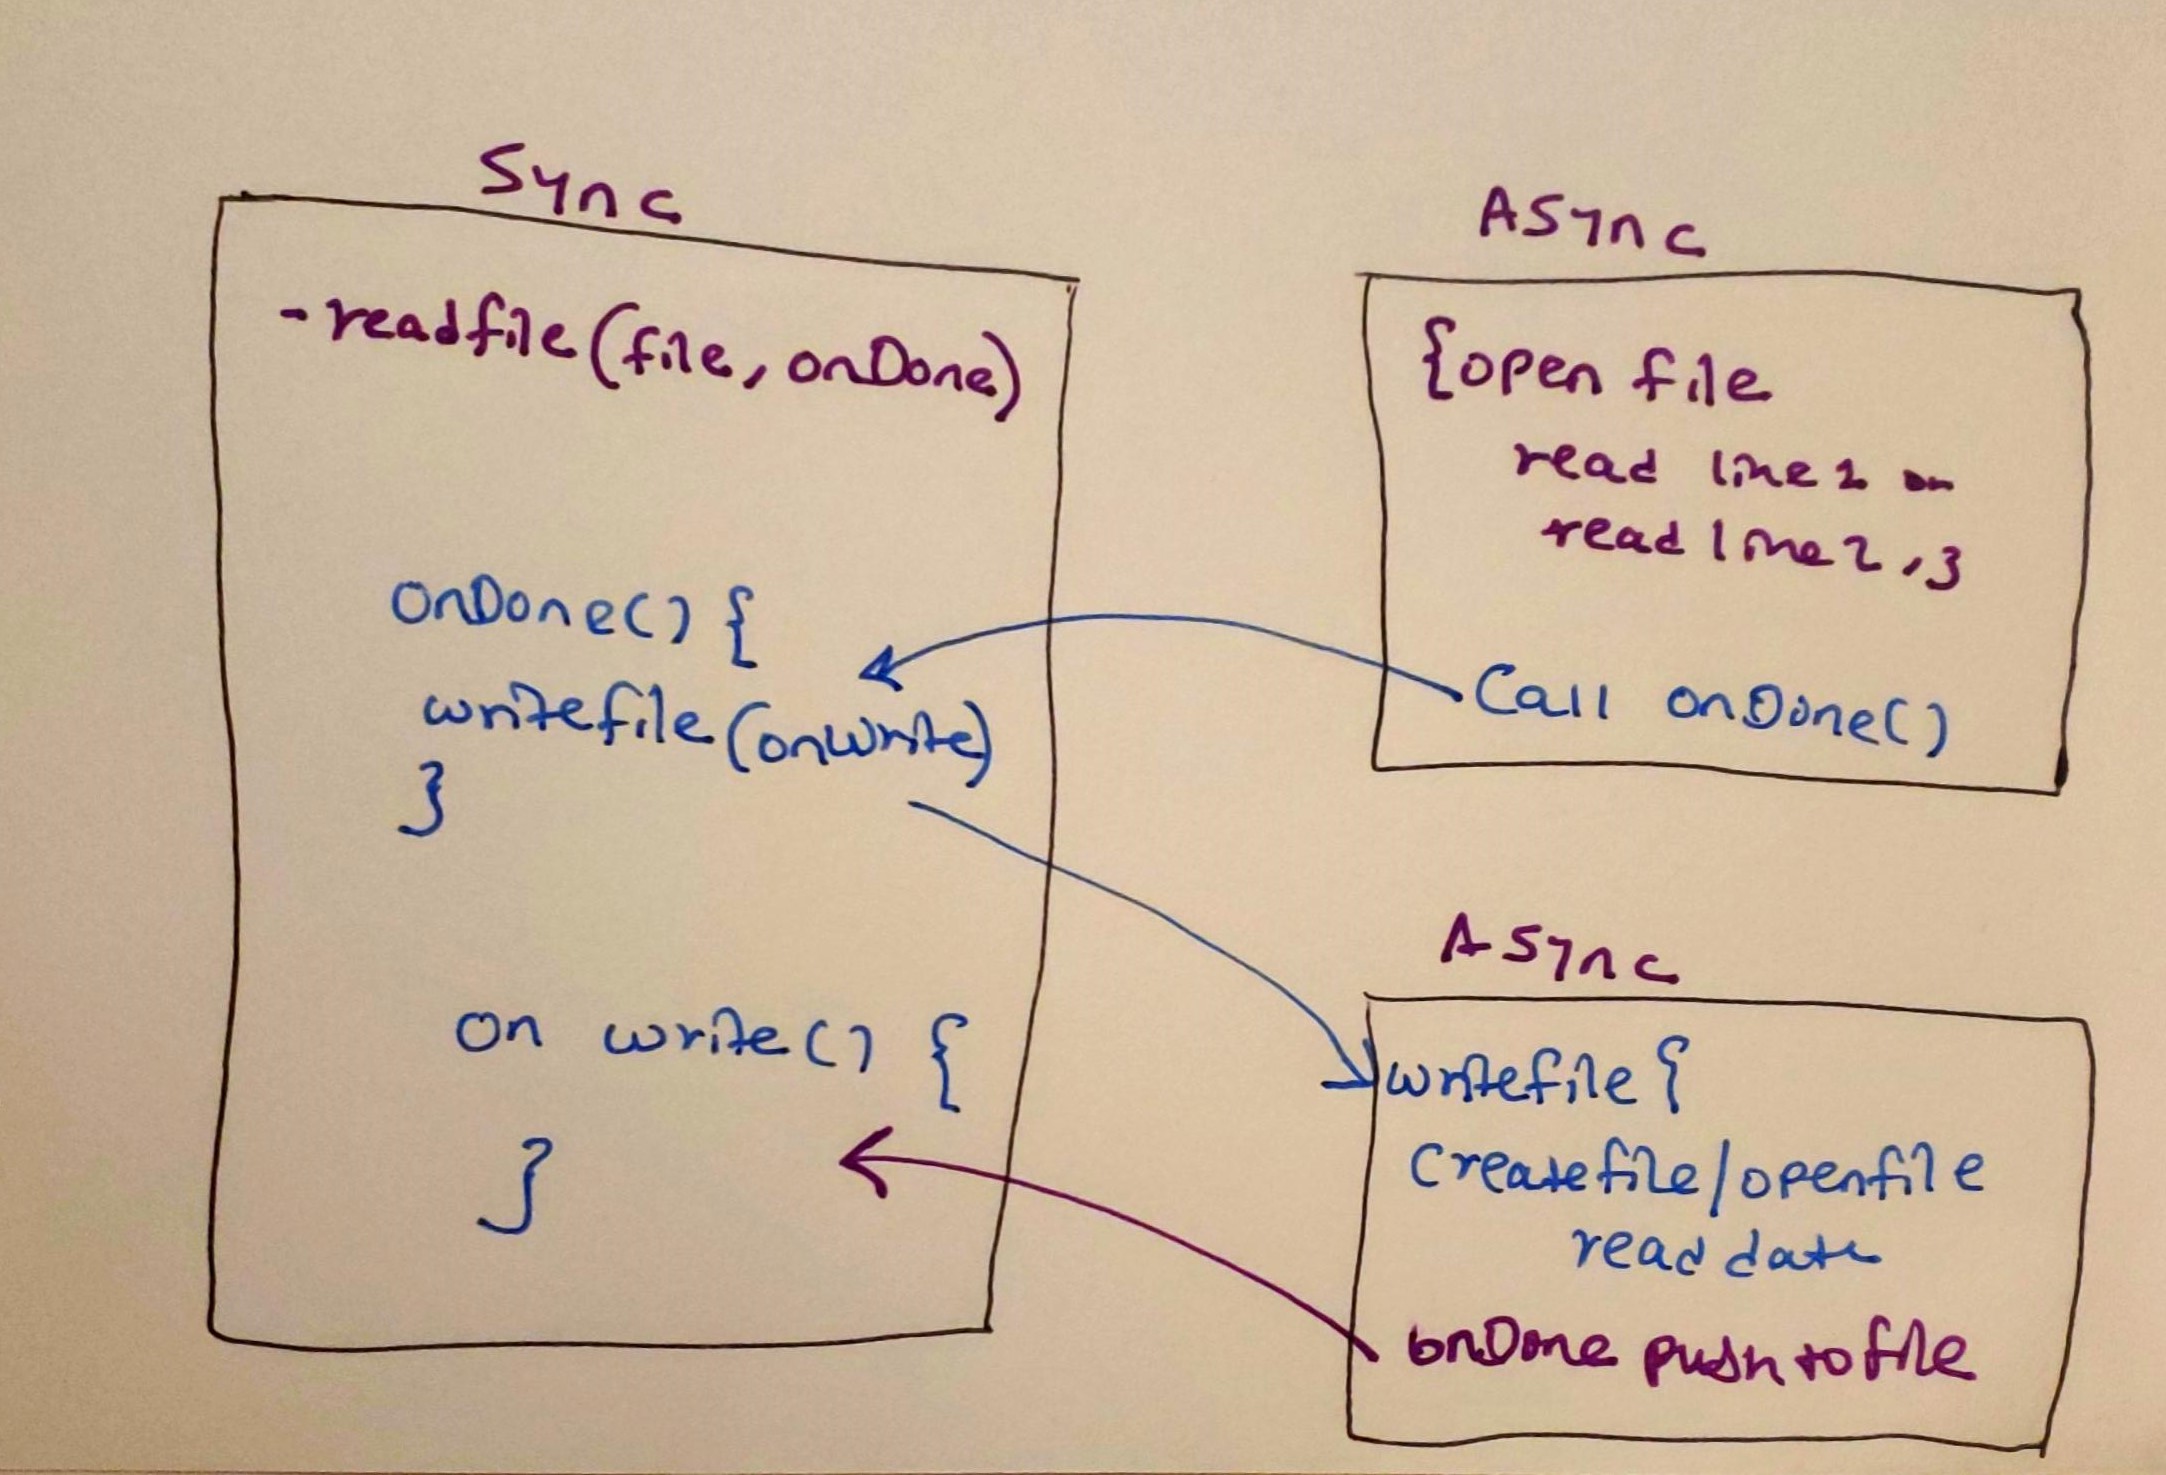 Sync
- readfile(file, onDone)
onDone() {
writefile(onWrite)
}
on write() {
}
ASync
{open file
read line 1
read line 2, 3
Call onDone()
ASync
writefile {
Createfile/openfile
read data
onDone push to file